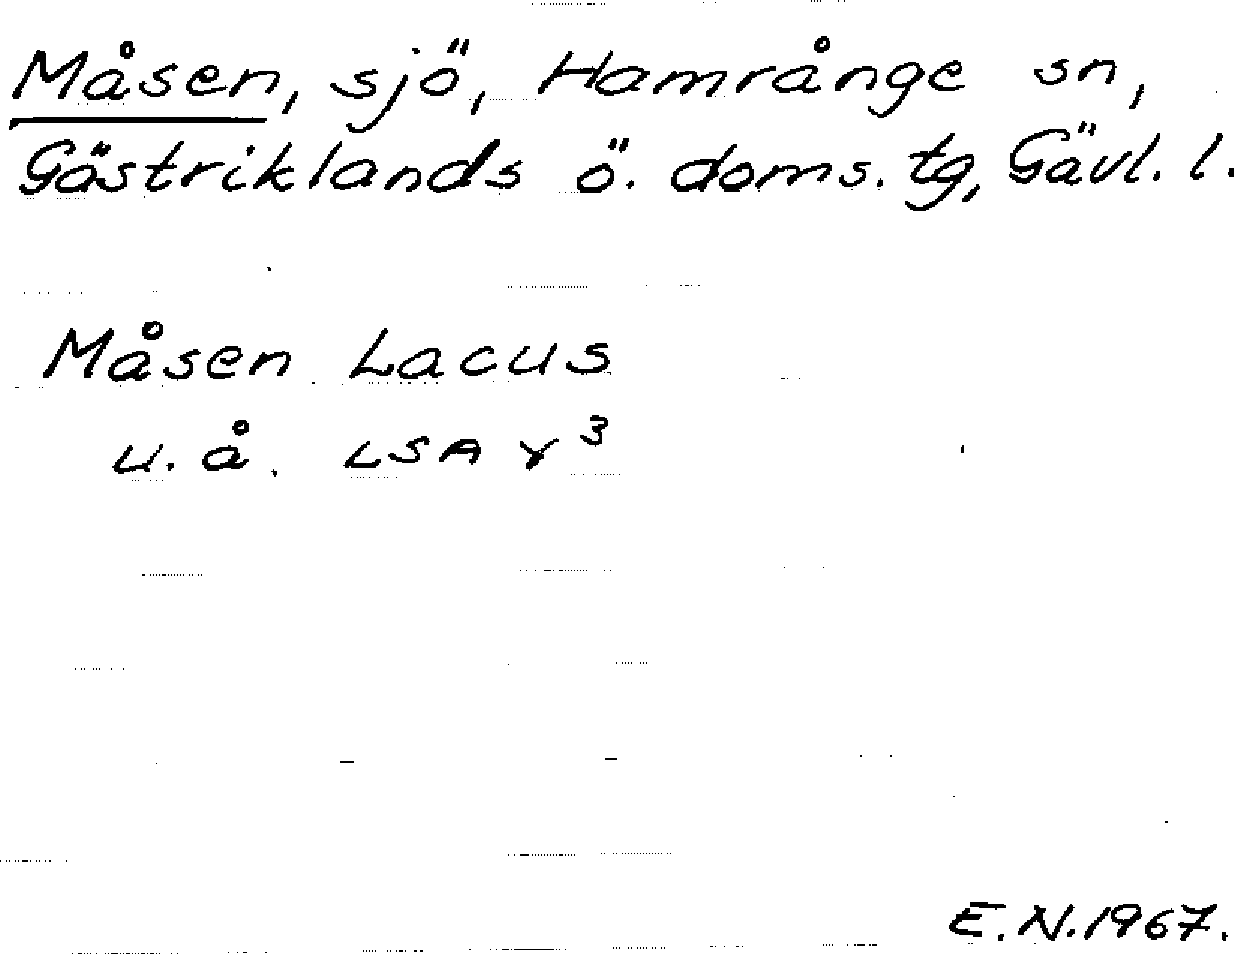 Måsen, sjö, Hamrånge sn,
Gästriklands ö. doms. tg, Gävl. l.
Måsen Lacus
u. å. LSA γ³
E. N. 1967.